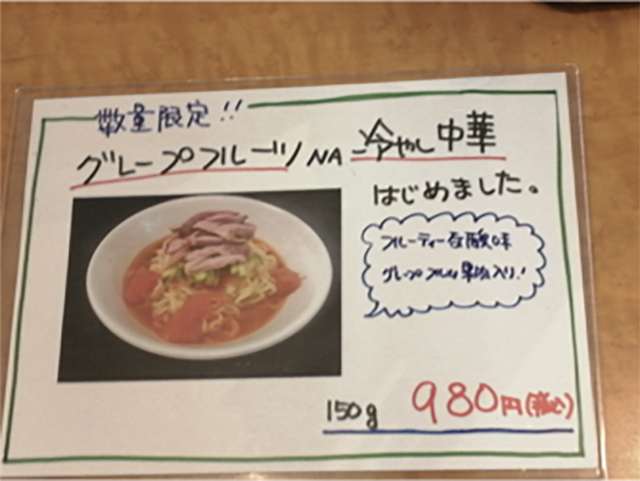 数量限定!!
グレープフルーツNA冷やし中華
はじめました。
フルーティーな酸味
グレープフルーツ果肉入り!
150g 980円(税込)